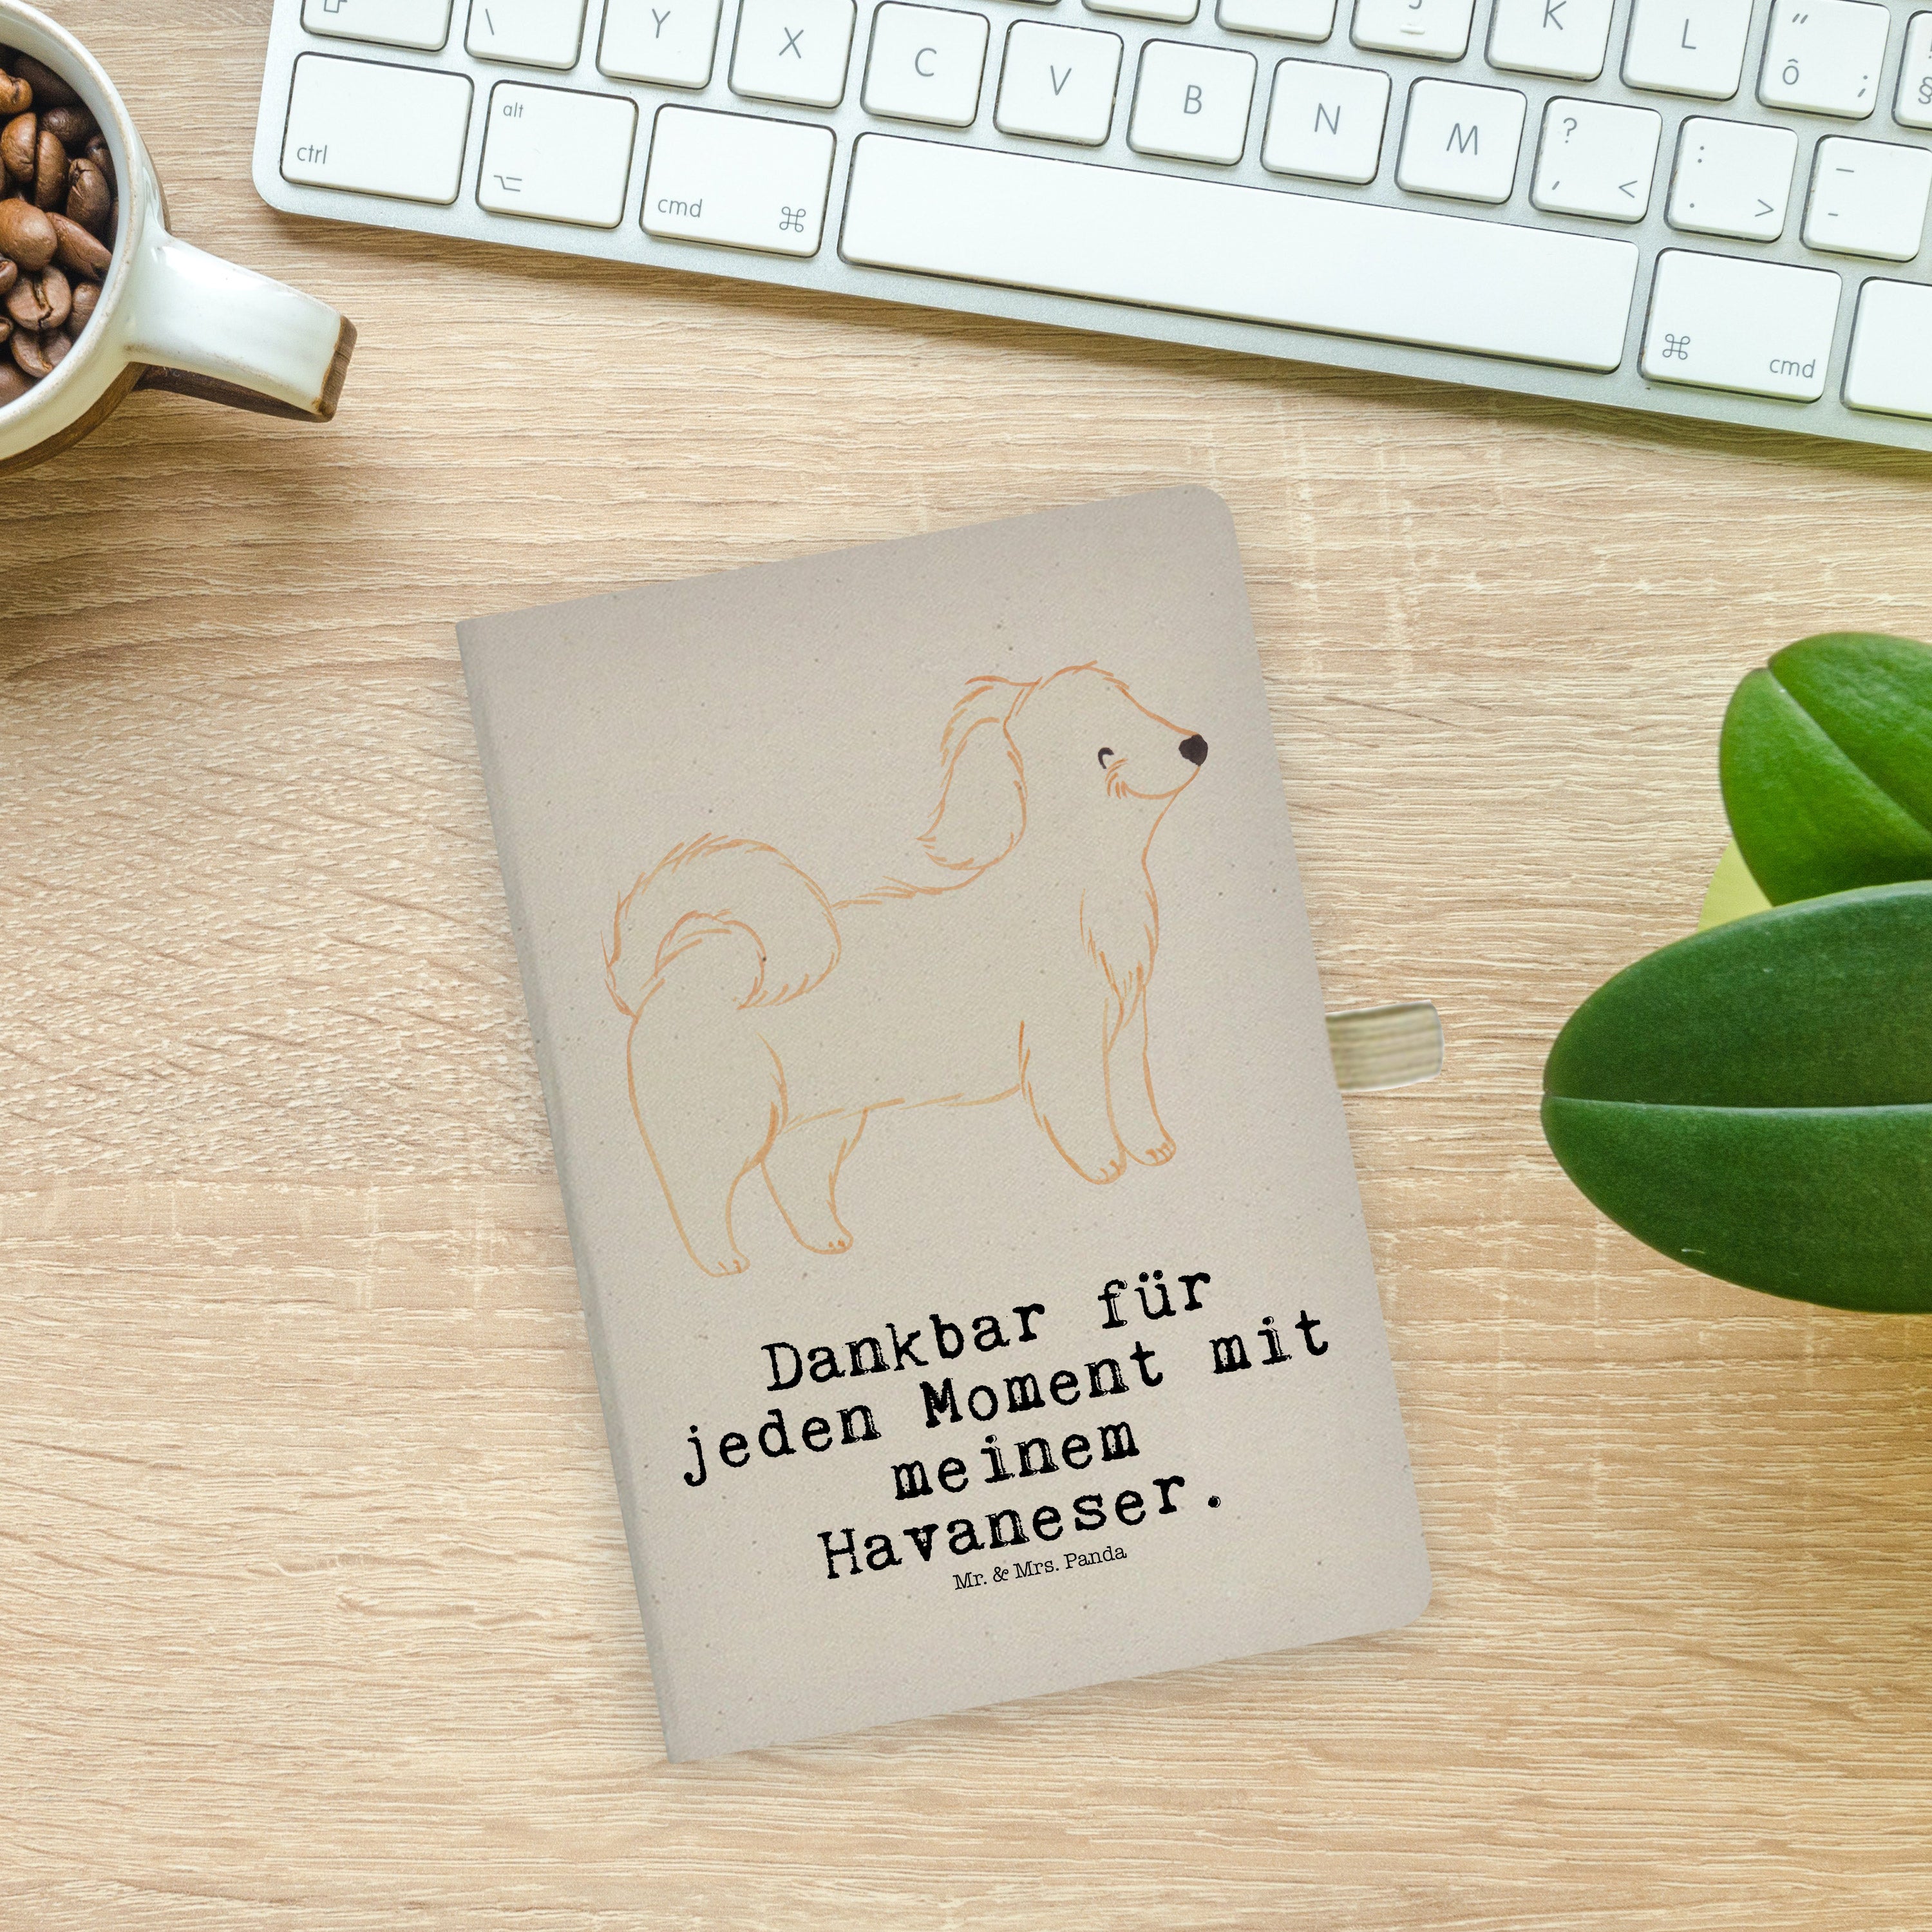 \ Y X C V B N M K L
ctrl
alt
cmd ⌘
? , <
: . >
ô ;
⌘ cmd
Dankbar für
jeden Moment mit
meinem
Havaneser.
Mr. & Mrs. Panda